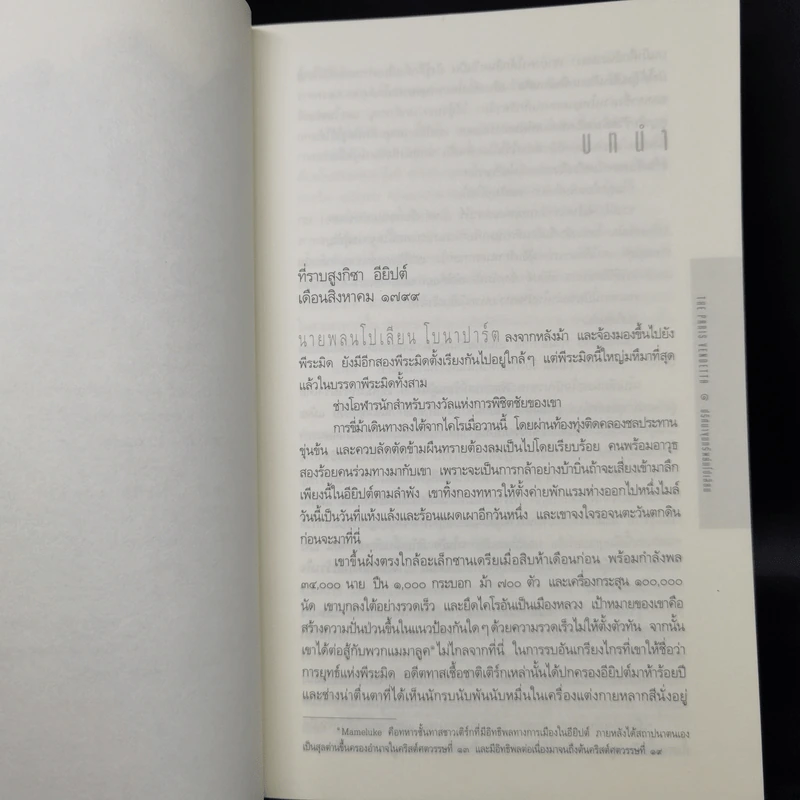 บทนำ
ที่ราบสูงกิซา อียิปต์
เดือนสิงหาคม ๑๗๙๙
นายพลนโปเลียน โบนาปาร์ต ลงจากหลังม้า และจ้องมองขึ้นไปยัง
พีระมิด ยังมีอีกสองพีระมิดตั้งเรียงกันไปอยู่ใกล้ๆ แต่พีระมิดนี้ใหญ่มหึมาที่สุด
แล้วในบรรดาพีระมิดทั้งสาม
ช่างโอฬารนักสำหรับรางวัลแห่งการพิชิตชัยของเขา
การขี่ม้าเดินทางลงใต้จากไคโรเมื่อวานนี้ โดยผ่านท้องทุ่งติดคลองชลประทาน
ขุ่นข้น และควบลัดตัดข้ามผืนทรายต้องลมเป็นไปโดยเรียบร้อย คนพร้อมอาวุธ
สองร้อยคนร่วมทางมากับเขา เพราะจะเป็นการกล้าอย่างบ้าบิ่นถ้าจะเสี่ยงเข้ามาลึก
เพียงนี้ในอียิปต์ตามลำพัง เขาทิ้งกองทหารให้ตั้งค่ายพักแรมห่างออกไปหนึ่งไมล์
วันนี้เป็นวันที่แห้งแล้งและร้อนแผดเผาอีกวันหนึ่ง และเขาจงใจรอจนตะวันตกดิน
ก่อนจะมาที่นี่
เขาขึ้นฝั่งตรงใกล้อะเล็กซานเดรียเมื่อสิบห้าเดือนก่อน พร้อมกำลังพล
๓๔,๐๐๐ นาย ปืน ๑,๐๐๐ กระบอก ม้า ๗๐๐ ตัว และเครื่องกระสุน ๑๐๐,๐๐๐
นัด เขาบุกลงใต้อย่างรวดเร็ว และยึดไคโรอันเป็นเมืองหลวง เป้าหมายของเขาคือ
สร้างความปั่นป่วนขึ้นในแนวป้องกันใดๆ ด้วยความรวดเร็วไม่ให้ตั้งตัวทัน จากนั้น
เขาได้ต่อสู้กับพวกแมมาลูค*ไม่ไกลจากที่นี่ ในการรบอันเกรียงไกรที่เขาให้ชื่อว่า
การยุทธ์แห่งพีระมิด อดีตทาสเชื้อชาติเติร์กเหล่านั้นได้ปกครองอียิปต์มาห้าร้อยปี
และช่างน่าตื่นตาที่ได้เห็นนักรบนับพันนับหมื่นในเครื่องแต่งกายหลากสีนั่งอยู่
*Mameluke คือทหารชั้นทาสชาวเติร์กที่มีอิทธิพลทางการเมืองในอียิปต์ ภายหลังได้สถาปนาตนเอง
เป็นสุลต่านขึ้นครองอำนาจในคริสต์ศตวรรษที่ ๑๓ และมีอิทธิพลต่อเนื่องมาจนถึงต้นคริสต์ศตวรรษที่ ๑๙
THE PARIS VENDETTA